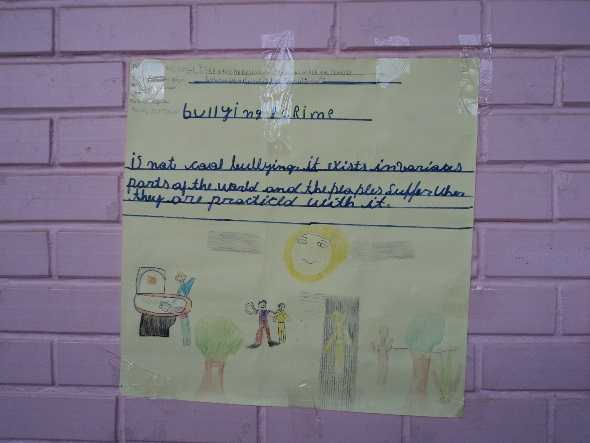 bullying is Rime
is not cool bullying, it exists in various
parts of the world and the peoples suffer when
they are practicld with it.